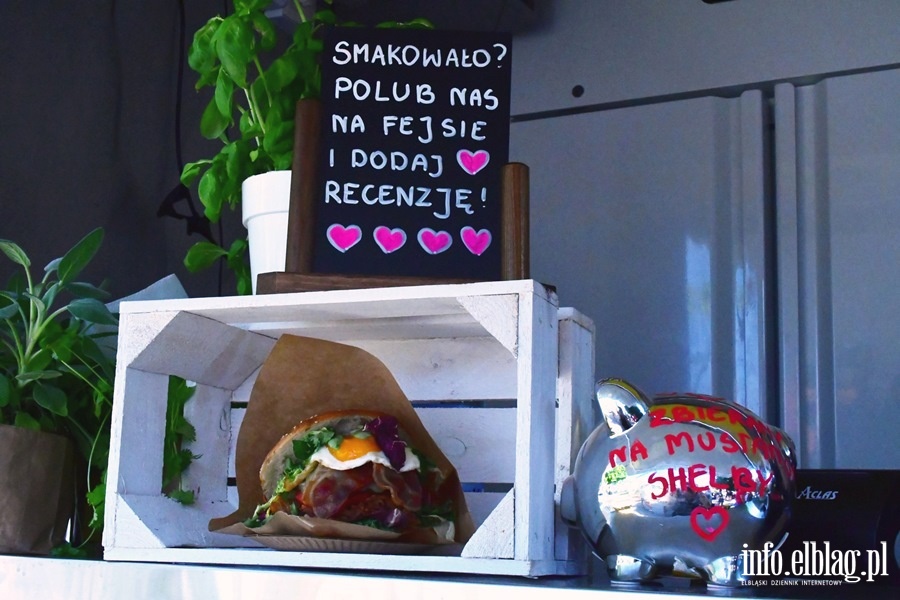 SMAKOWAŁO?
POLUB NAS
NA FEJSIE
I DODAJ
RECENZJĘ!
NA
SHELBY
ACLAS
info.elblag.pl
ELBLĄSKI DZIENNIK INTERNETOWY